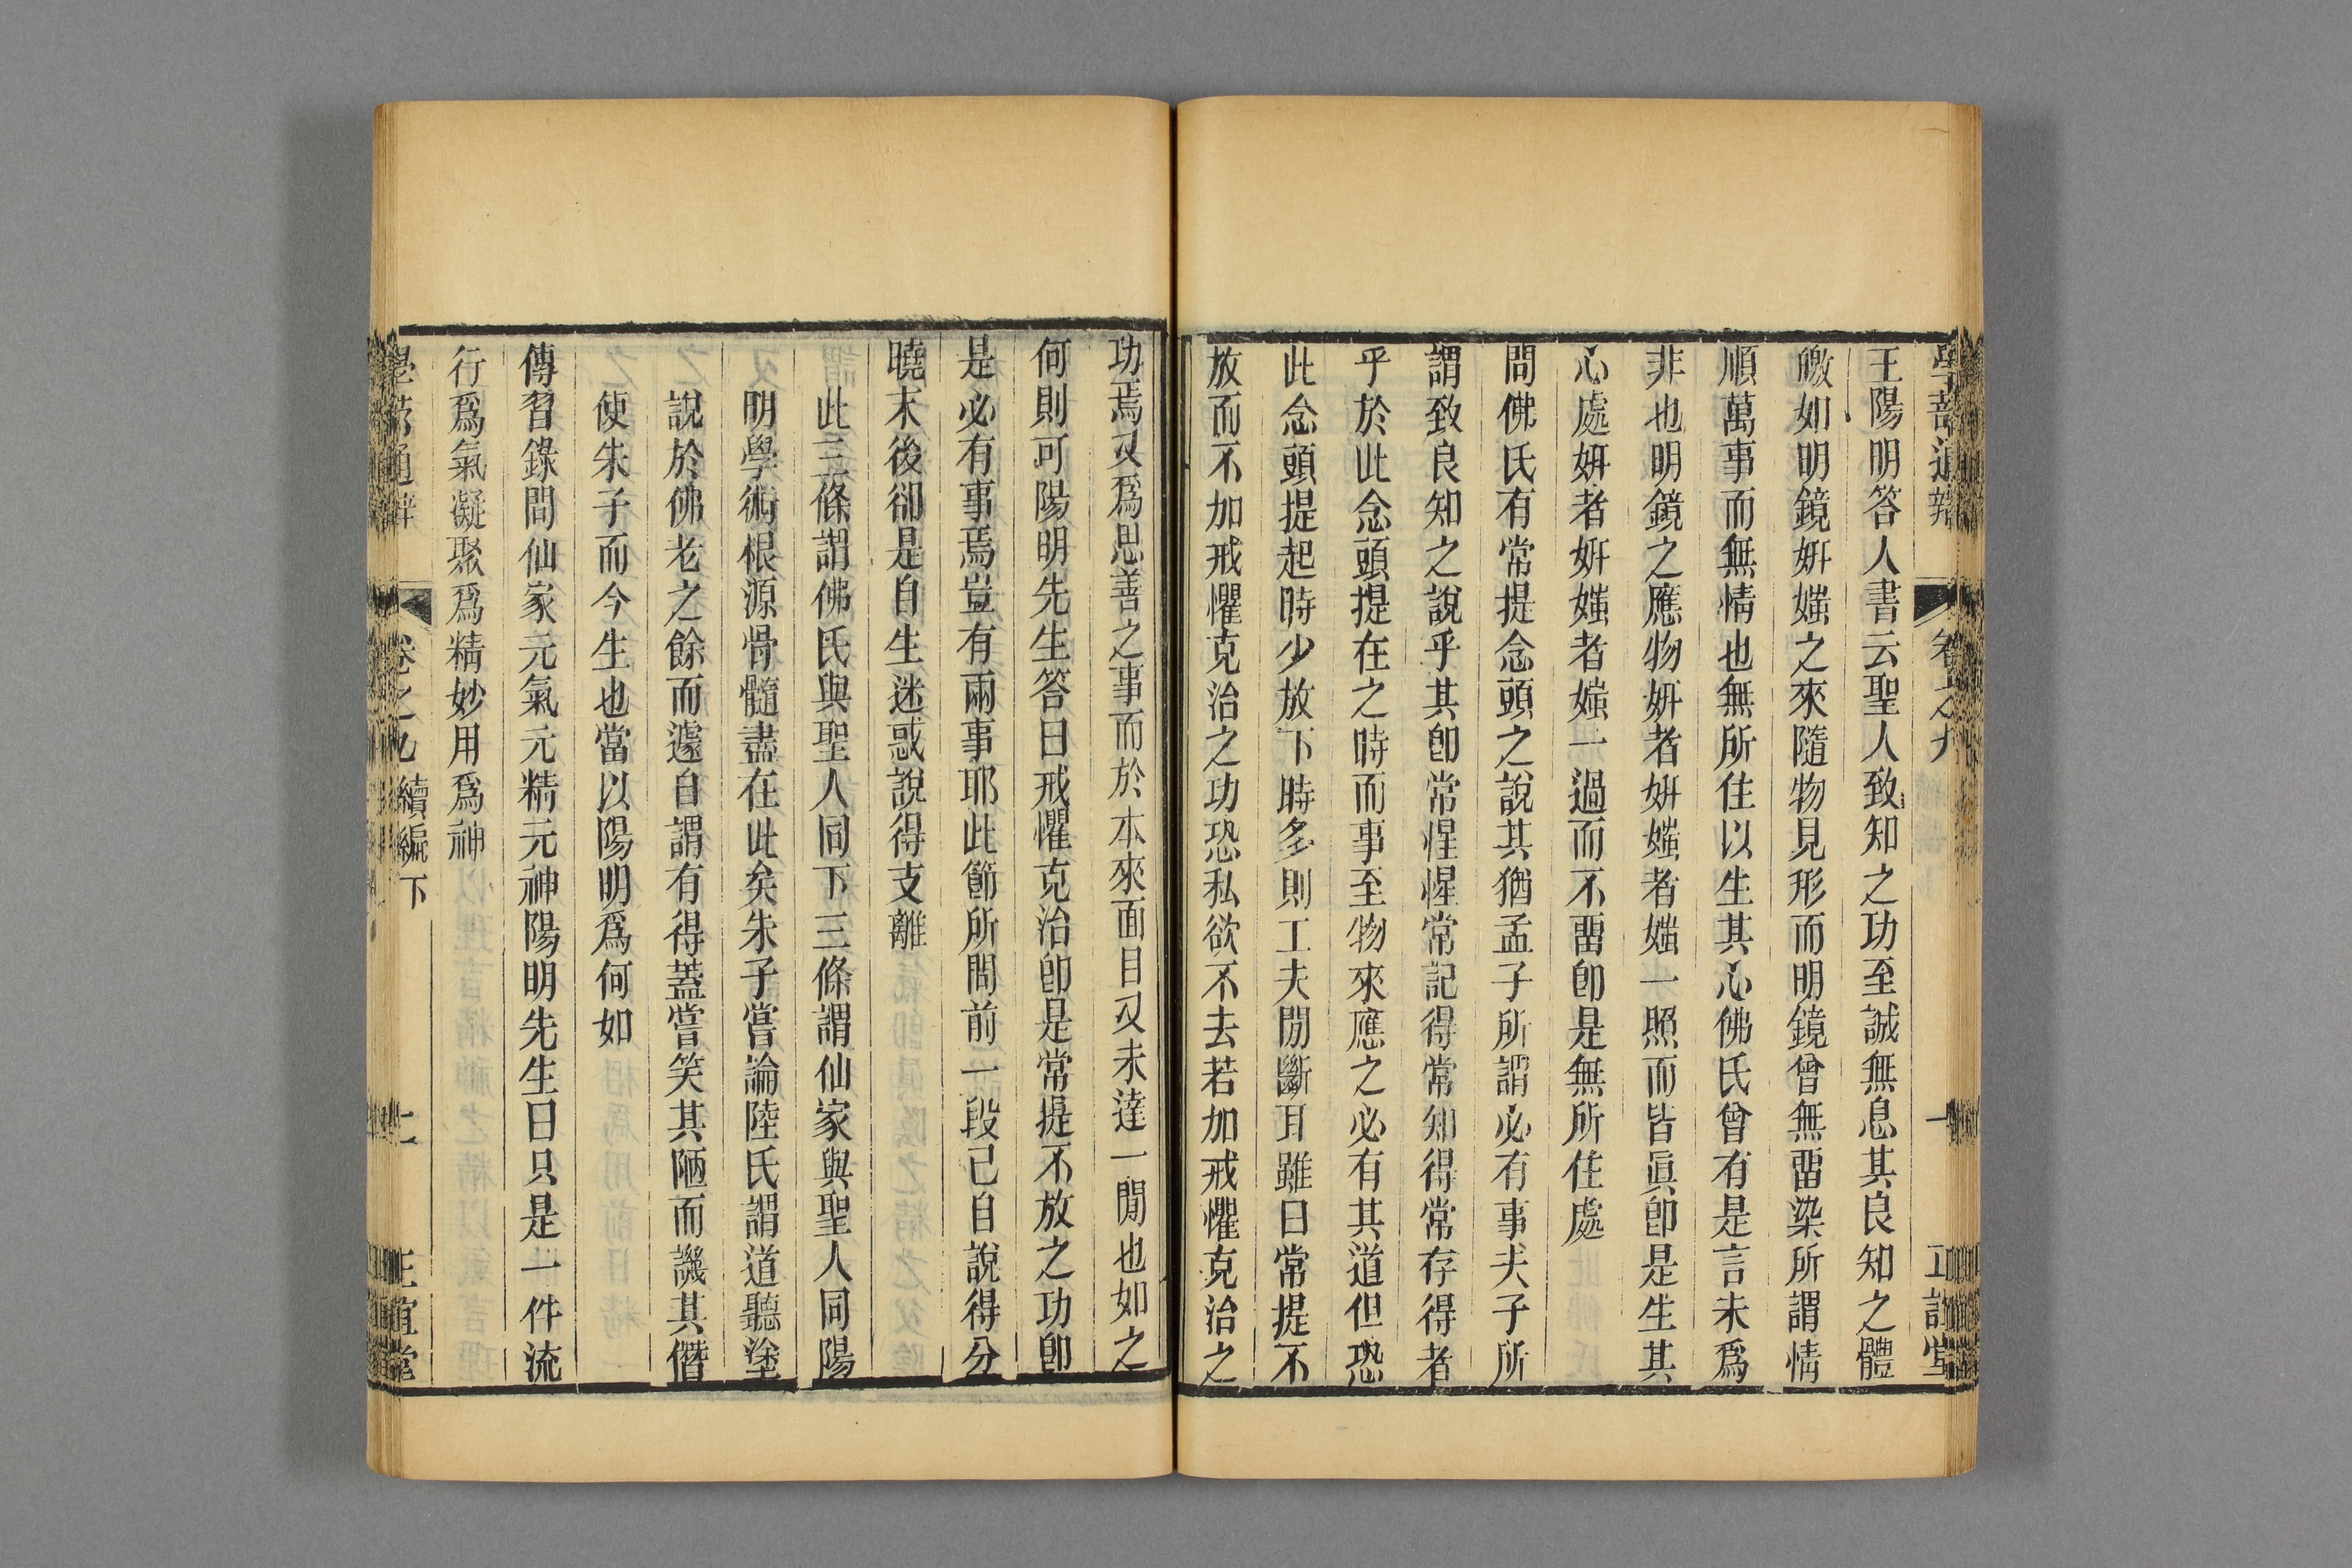 學蔀通辨 卷之九 一 正誼堂
王陽明答人書云聖人致知之功至誠無息其良知之體
皦如明鏡姸媸之來隨物見形而明鏡曾無畱染所謂情
順萬事而無情也無所住以生其心佛氏曾有是言未爲
非也明鏡之應物姸者姸媸者媸一照而皆眞卽是生其
心處姸者姸媸者媸一過而不畱卽是無所住處
問佛氏有常提念頭之說其猶孟子所謂必有事夫子所
謂致良知之說乎其卽常惺惺常記得常知得常存得者
乎於此念頭提在之時而事至物來應之必有其道但恐
此念頭提起時少放下時多則工夫閒斷耳雖曰常提不
放而不加戒懼克治之功恐私欲不去若加戒懼克治之
功焉又爲思善之事而於本來面目又未達一閒也如之
何則可陽明先生答曰戒懼克治卽是常提不放之功卽
是必有事焉豈有兩事耶此節所問前一段已自說得分
曉末後卻是自生迷惑說得支離
此三條謂佛氏與聖人同下三條謂仙家與聖人同陽
明學術根源骨髓盡在此矣朱子嘗論陸氏謂道聽塗
說於佛老之餘而遽自謂有得蓋嘗笑其陋而譏其僭
使朱子而今生也當以陽明爲何如
傳習錄問仙家元氣元精元神陽明先生曰只是一件流
行爲氣凝聚爲精妙用爲神
學蔀通辨 卷之九 續編下 正誼堂